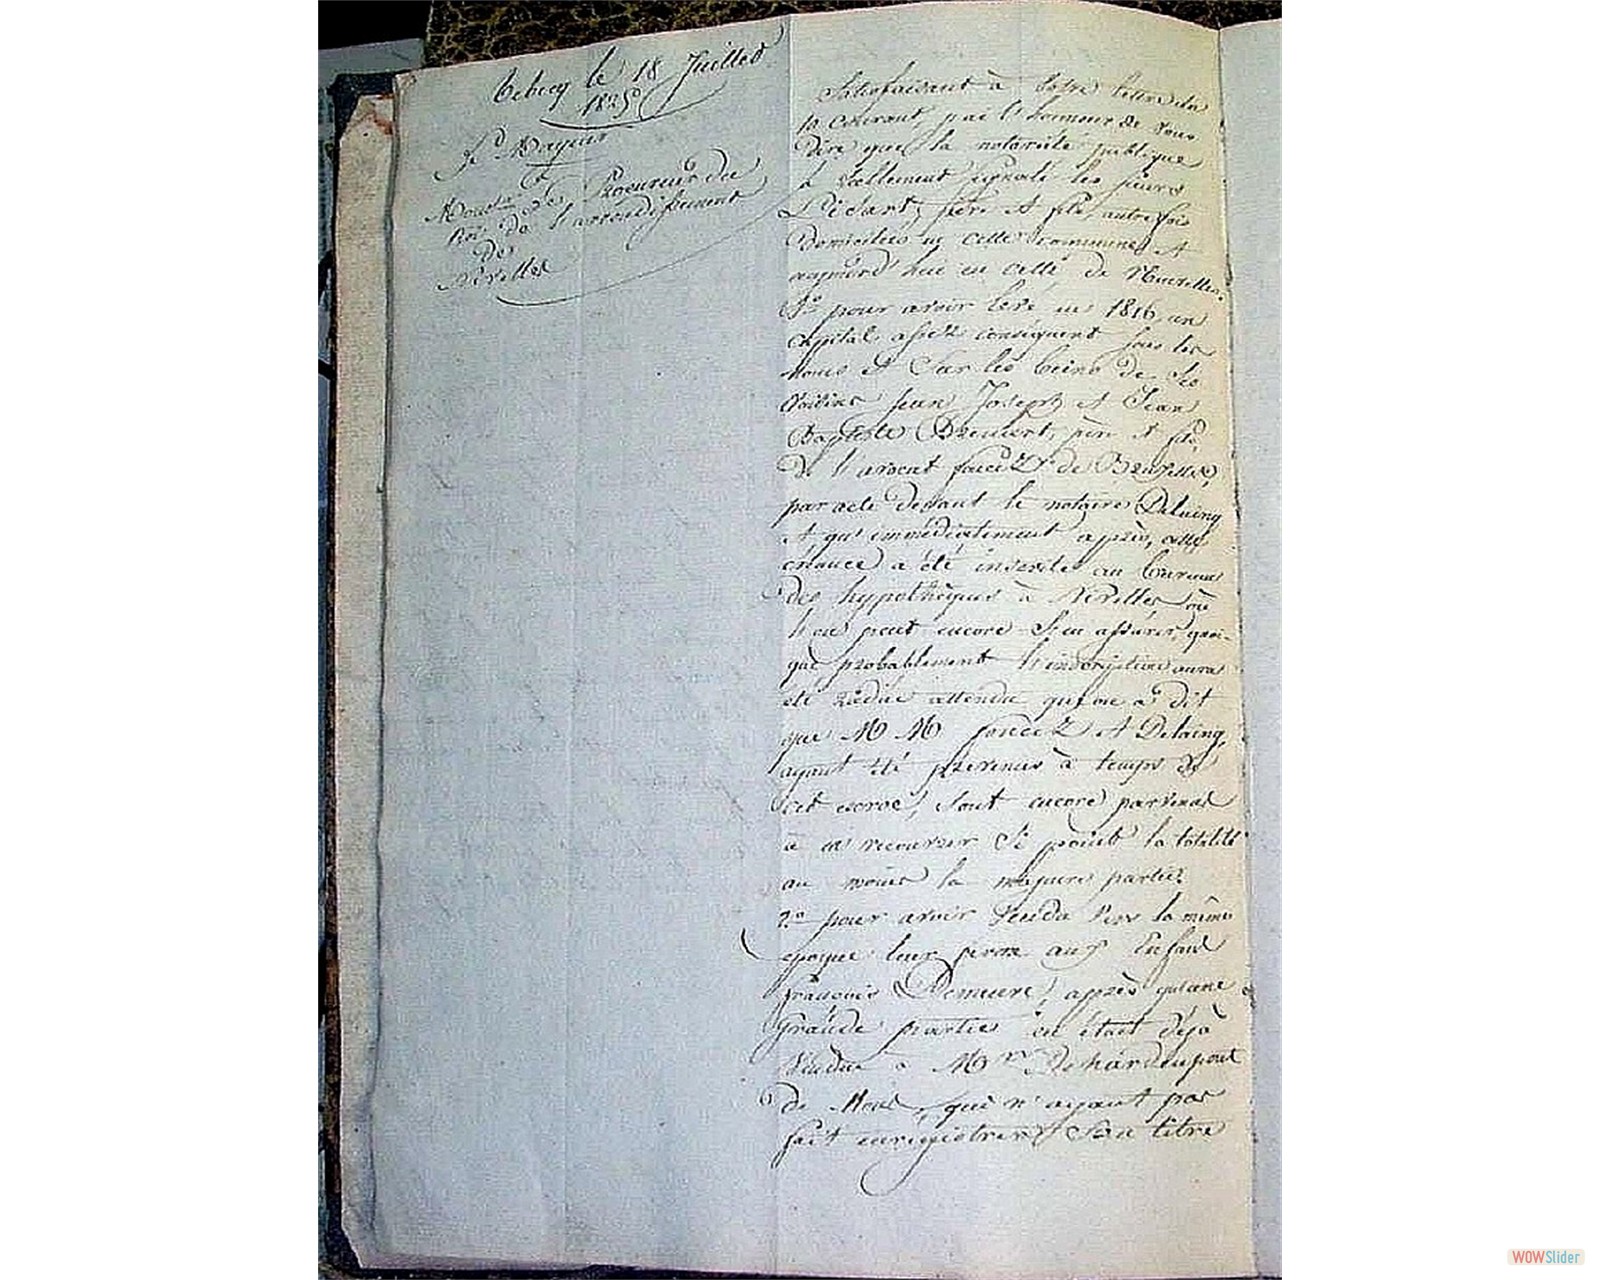 le 18 Juillet
1825
Monsr. le Procureur du
Roi de l'arrondissement
de
Nivelles
Satisfaisant à votre lettre du
courant, j'ai l'honneur de vous
dire que la notoriété publique
a réellement signalé les sieurs
père et fils, autrefois
domiciliés en cette commune et
aujourd'hui en celle de
1o pour avoir levé en 1816 un
capital assez conséquent sous les
noms et sur les biens de ses
voisins Jean Joseph et Jean
Baptiste père et fils
de l'avocat de Bruxelles,
par acte devant le notaire Delaing
et qu'immédiatement après, cette
créance a été inscrite au bureau
des hypothèques à Nivelles où
l'on peut encore s'en assurer, quoi-
que probablement l'inscription aura
été radiée attendu qu'on a dit
que MM et Delaing,
ayant été prévenus à temps de
cet escroc, sont encore parvenus
à en recouvrer si point la totalité
au moins la majeure partie.
2o pour avoir vendu vers la même
époque leur ferme aux Enfans
françois Demeure, après qu'une
grande partie en était déjà
vendue à Mr Dehardenpont
de Mons, qui n'ayant pas
fait enrégistrer son titre
WOWSlider